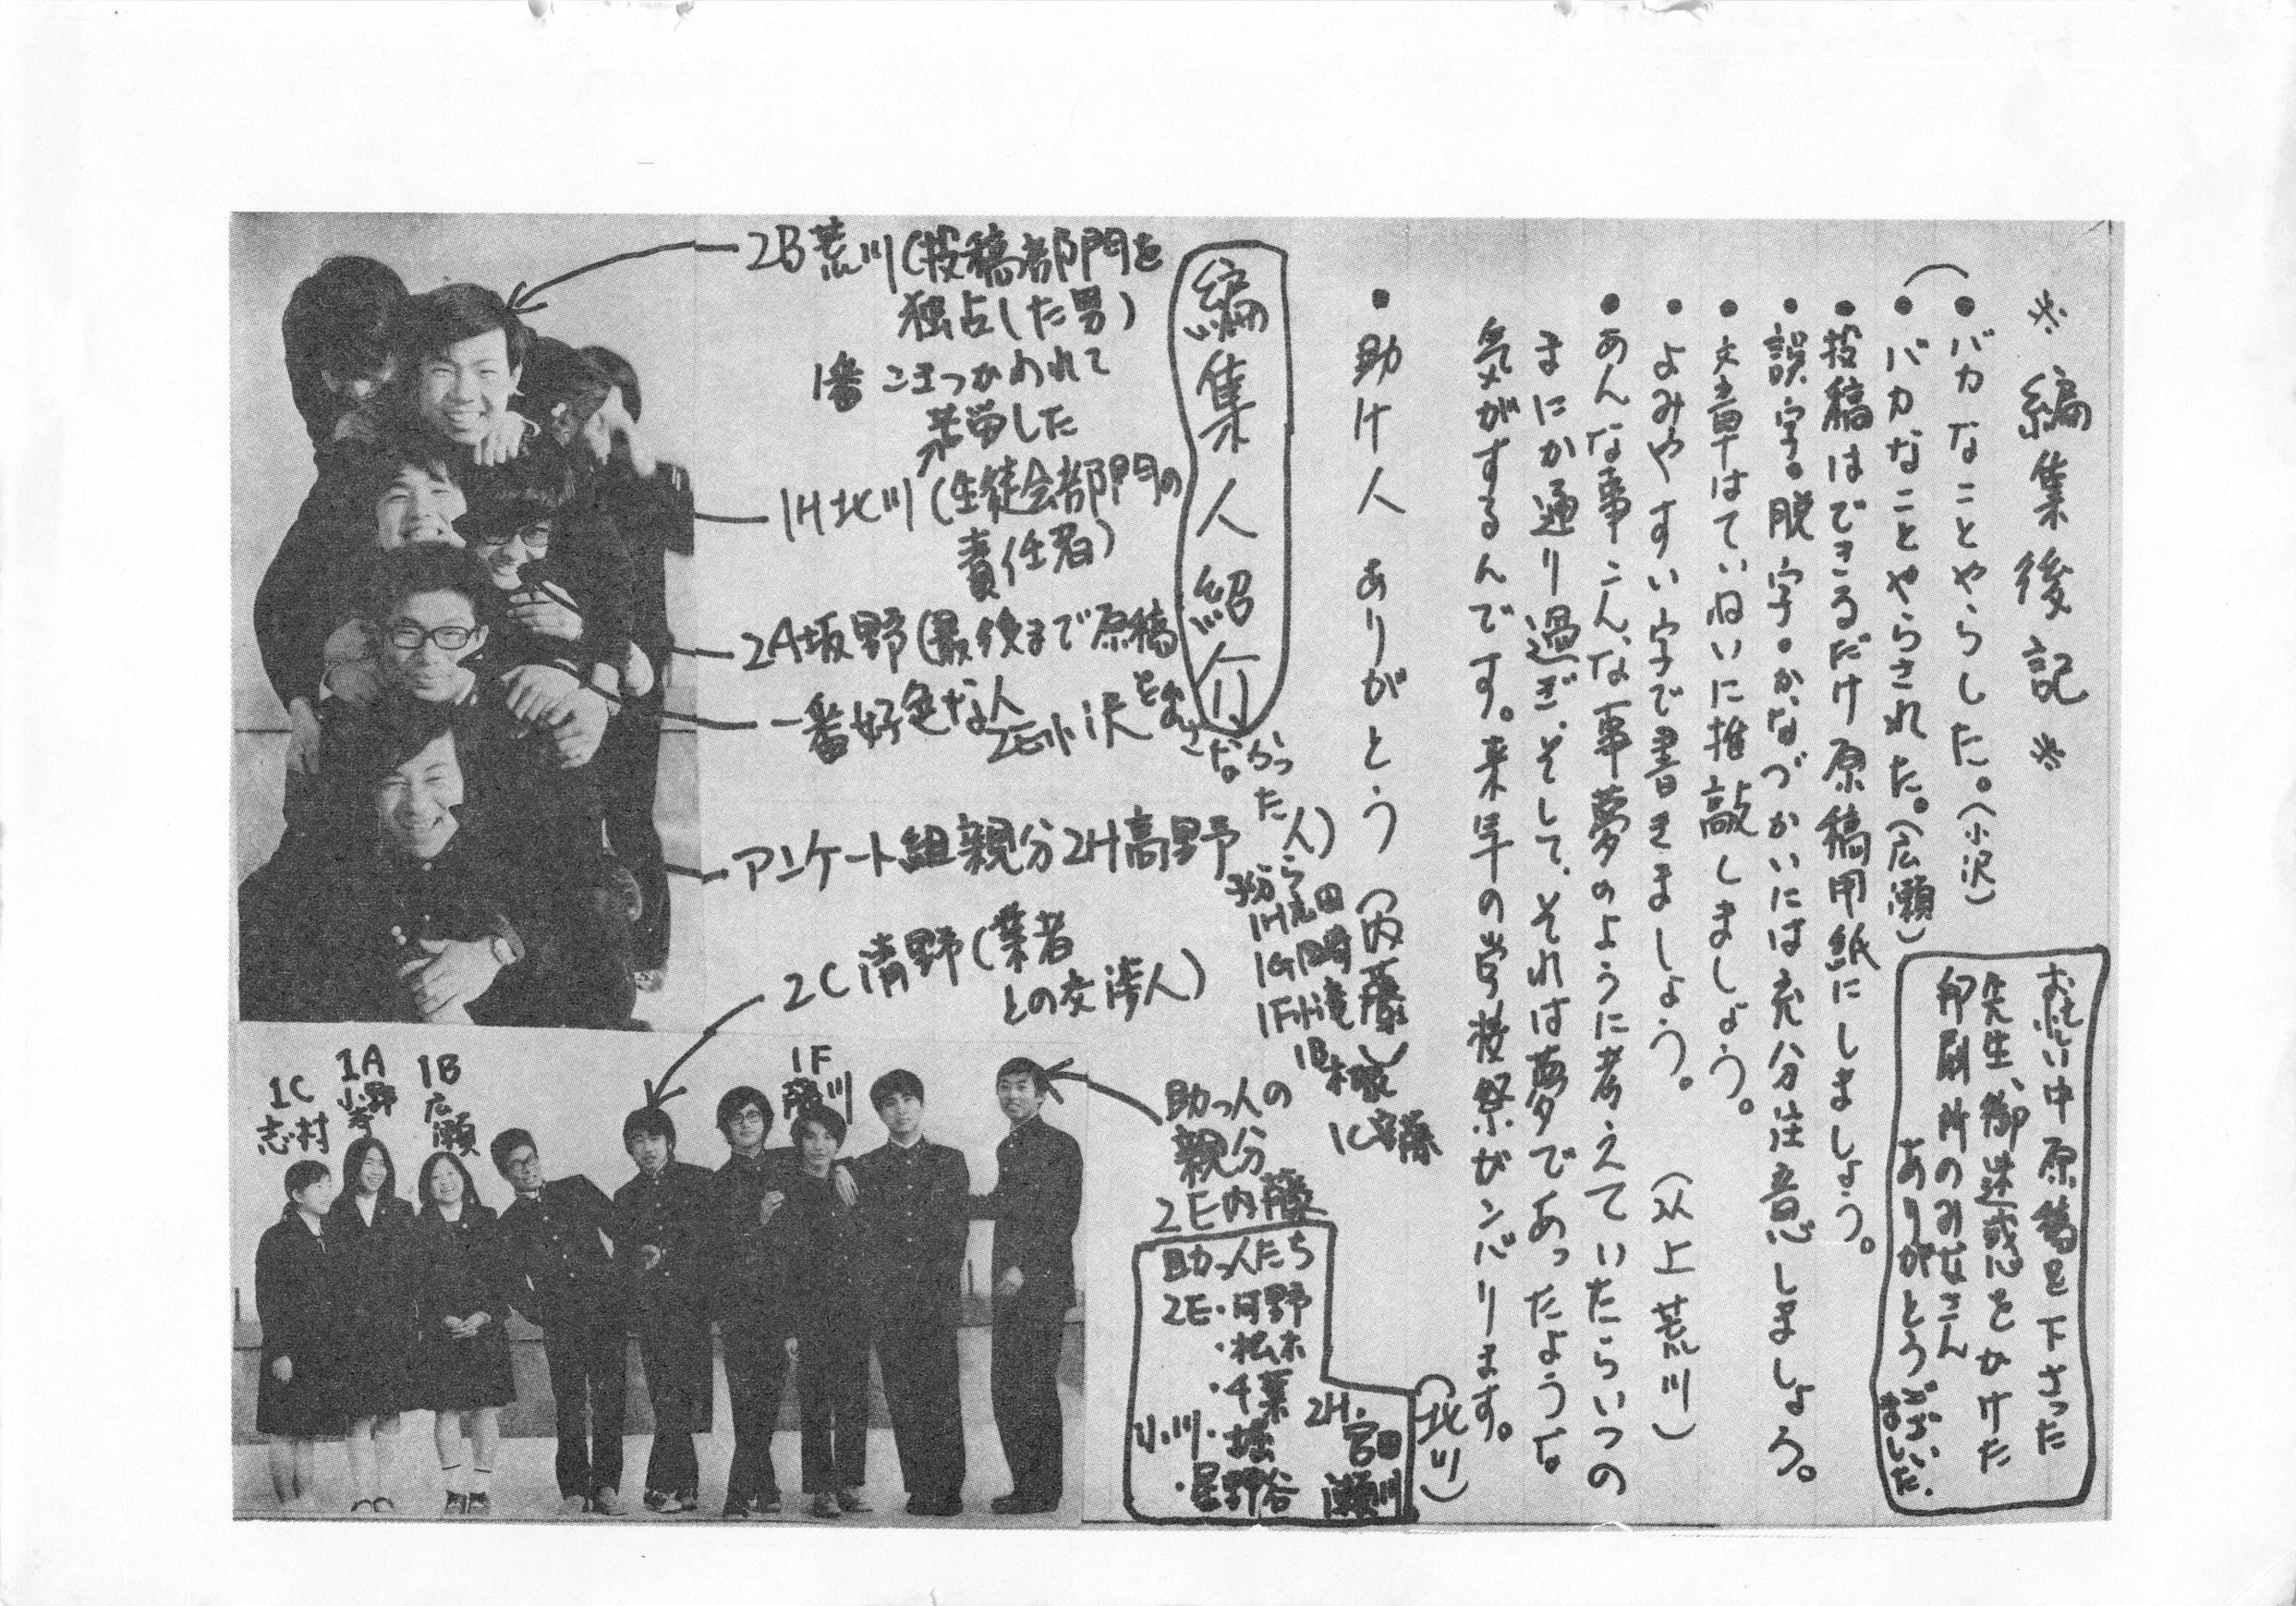 ※編集後記※
・バカなことやらした。(小沢)
・バカなことやらされた。(広瀬)
・投稿はできるだけ原稿用紙にしましょう。
・誤字。脱字。かなづかいには充分注意しましょう。
・文章はていねいに推敲しましょう。
・よみやすい字で書きましょう。 (以上荒川)
・あんな事こんな事夢のように考えていたらいつの
まにか通り過ぎ、そして、それは夢であったような
気がするんです。来年の学校祭がンバります。
(北川)
・助け人 ありがとう (内藤)
お忙い中原稿を下さった
先生、御迷惑をかけた
印刷所のみなさん
ありがとうござい
ました.
編集人紹介
2B荒川(投稿部門を
独占した男)
1番こまつかわれて
苦労した
1H北川(生徒会部門の
責任者)
2A坂野(最後まで原稿
をよこさなかった人)
一番好色な人
2E小沢
アンケート組親分2H高野
子分ら
1H志田
1G岡崎
1F小滝
1B
1C安藤
2C清野(業者
との交渉人)
1C
志村
1A
小野寺
1B
広瀬
1F
藤川
助っ人の
親分
2E内藤
助っ人たち
2E・河野
・松木
・千葉
小川・堀
・星野谷
2H・宮田
瀬川